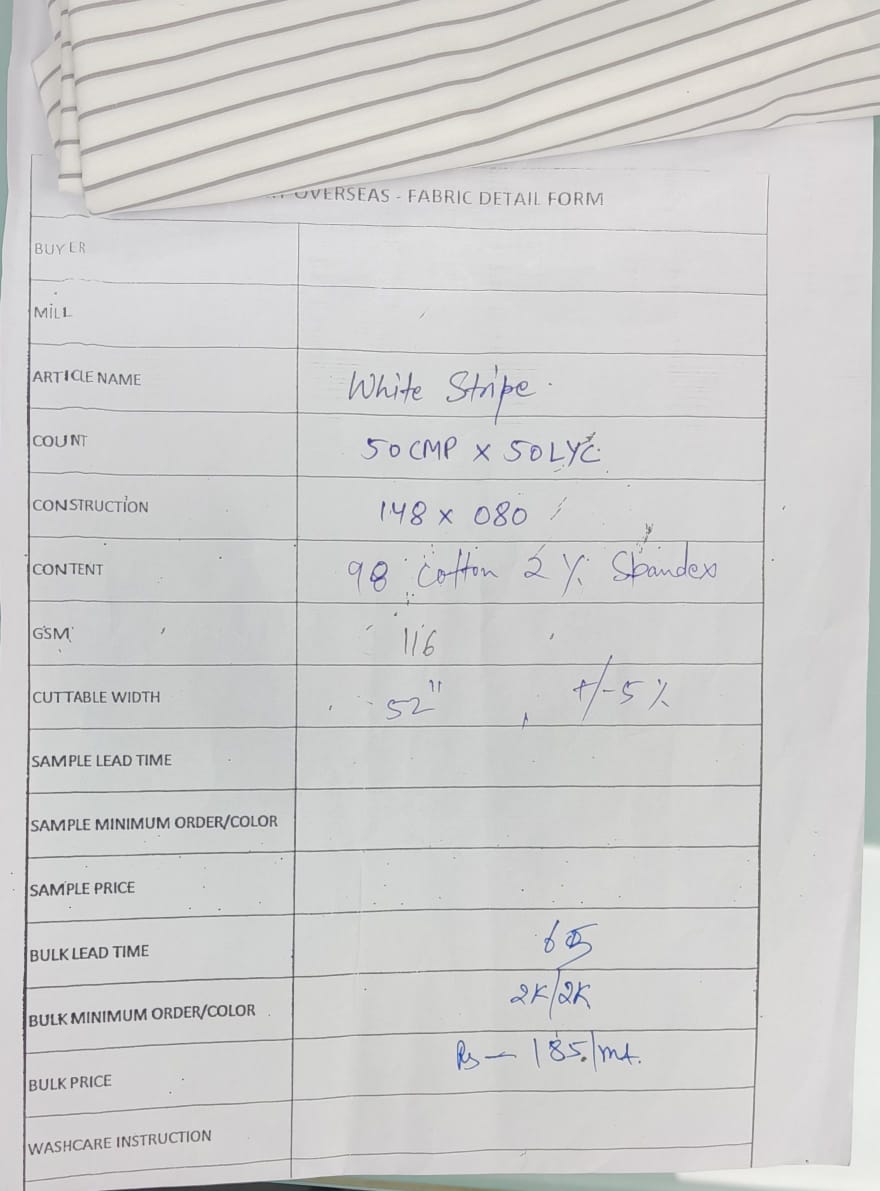 OVERSEAS - FABRIC DETAIL FORM
BUYER
MILL
ARTICLE NAME White Stripe.
COUNT 50 CMP X 50 LYC.
CONSTRUCTION 148 x 080
CONTENT 98 Cotton 2 % Spandex
GSM 116
CUTTABLE WIDTH 52" +/-5 %
SAMPLE LEAD TIME
SAMPLE MINIMUM ORDER/COLOR
SAMPLE PRICE
BULK LEAD TIME 65
BULK MINIMUM ORDER/COLOR 2K/2K
BULK PRICE Rs - 185./mt.
WASHCARE INSTRUCTION